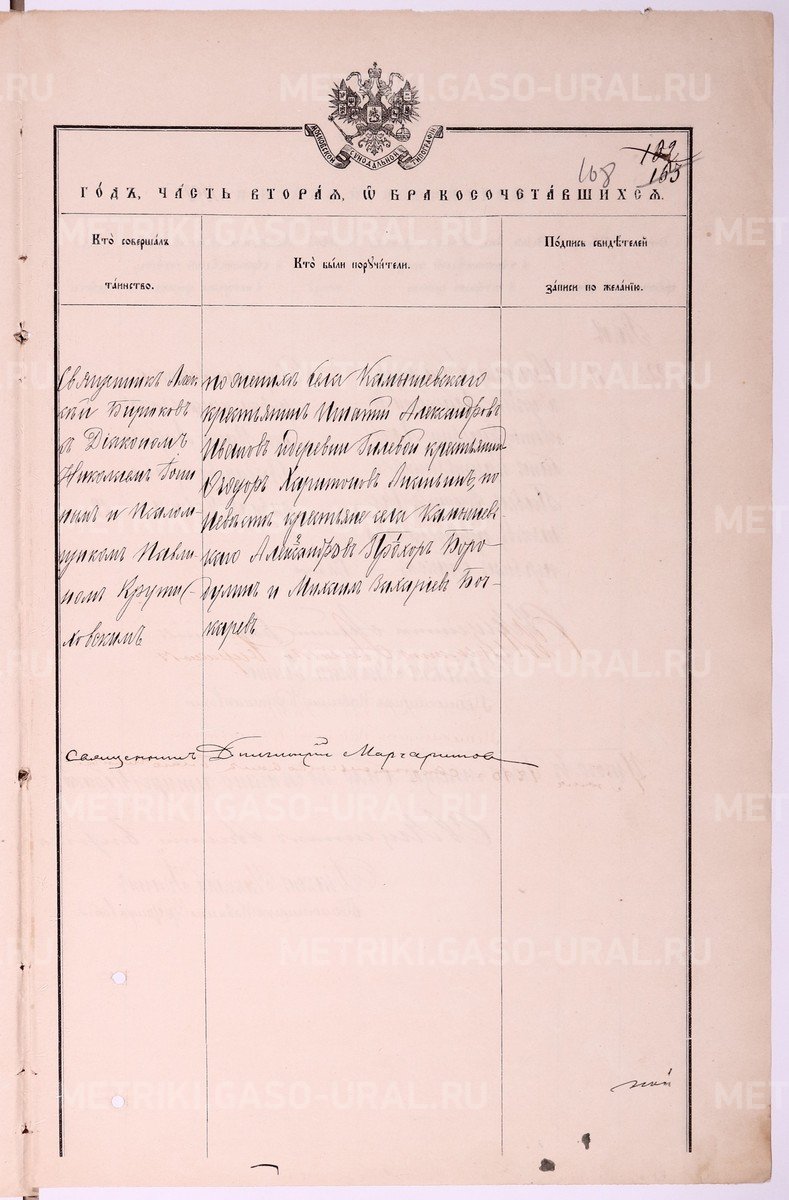 METRIKI.GASO-URAL.RU
МОСКОВСКОЙ СѴНОДАЛЬНОЙ ТИПОГРАФІИ
168
165
ГО́ДЪ, ЧА́СТЬ ВТОРА́Я, Ѡ҆ БРАКОСОЧЕТА́ВШИХСЯ.
Кто̀ соверша́лъ
та́инство.
Кто̀ бы́ли порꙋчи́тели.
По́дпись свидѣ́телей
за́писи по жела́нїю.
Священникъ Алек
сѣй Бирюковъ
съ Діакономъ
Николаемъ
нымъ и Псалом
щикомъ Павли
номъ Крути-
ховскимъ
по женихѣ села Камышевскаго
крестьянинъ Игнатій Александровъ
Ивановъ и деревни Гилевой крестьянинъ
Ѳеодоръ Харитоновъ по
невѣстѣ крестьяне села Камышев-
скаго Александровъ Прохоръ Боро-
дулинъ и Михаилъ Захаріевъ Боч-
каревъ
Священникъ Димитрій Маргаритовъ
ской